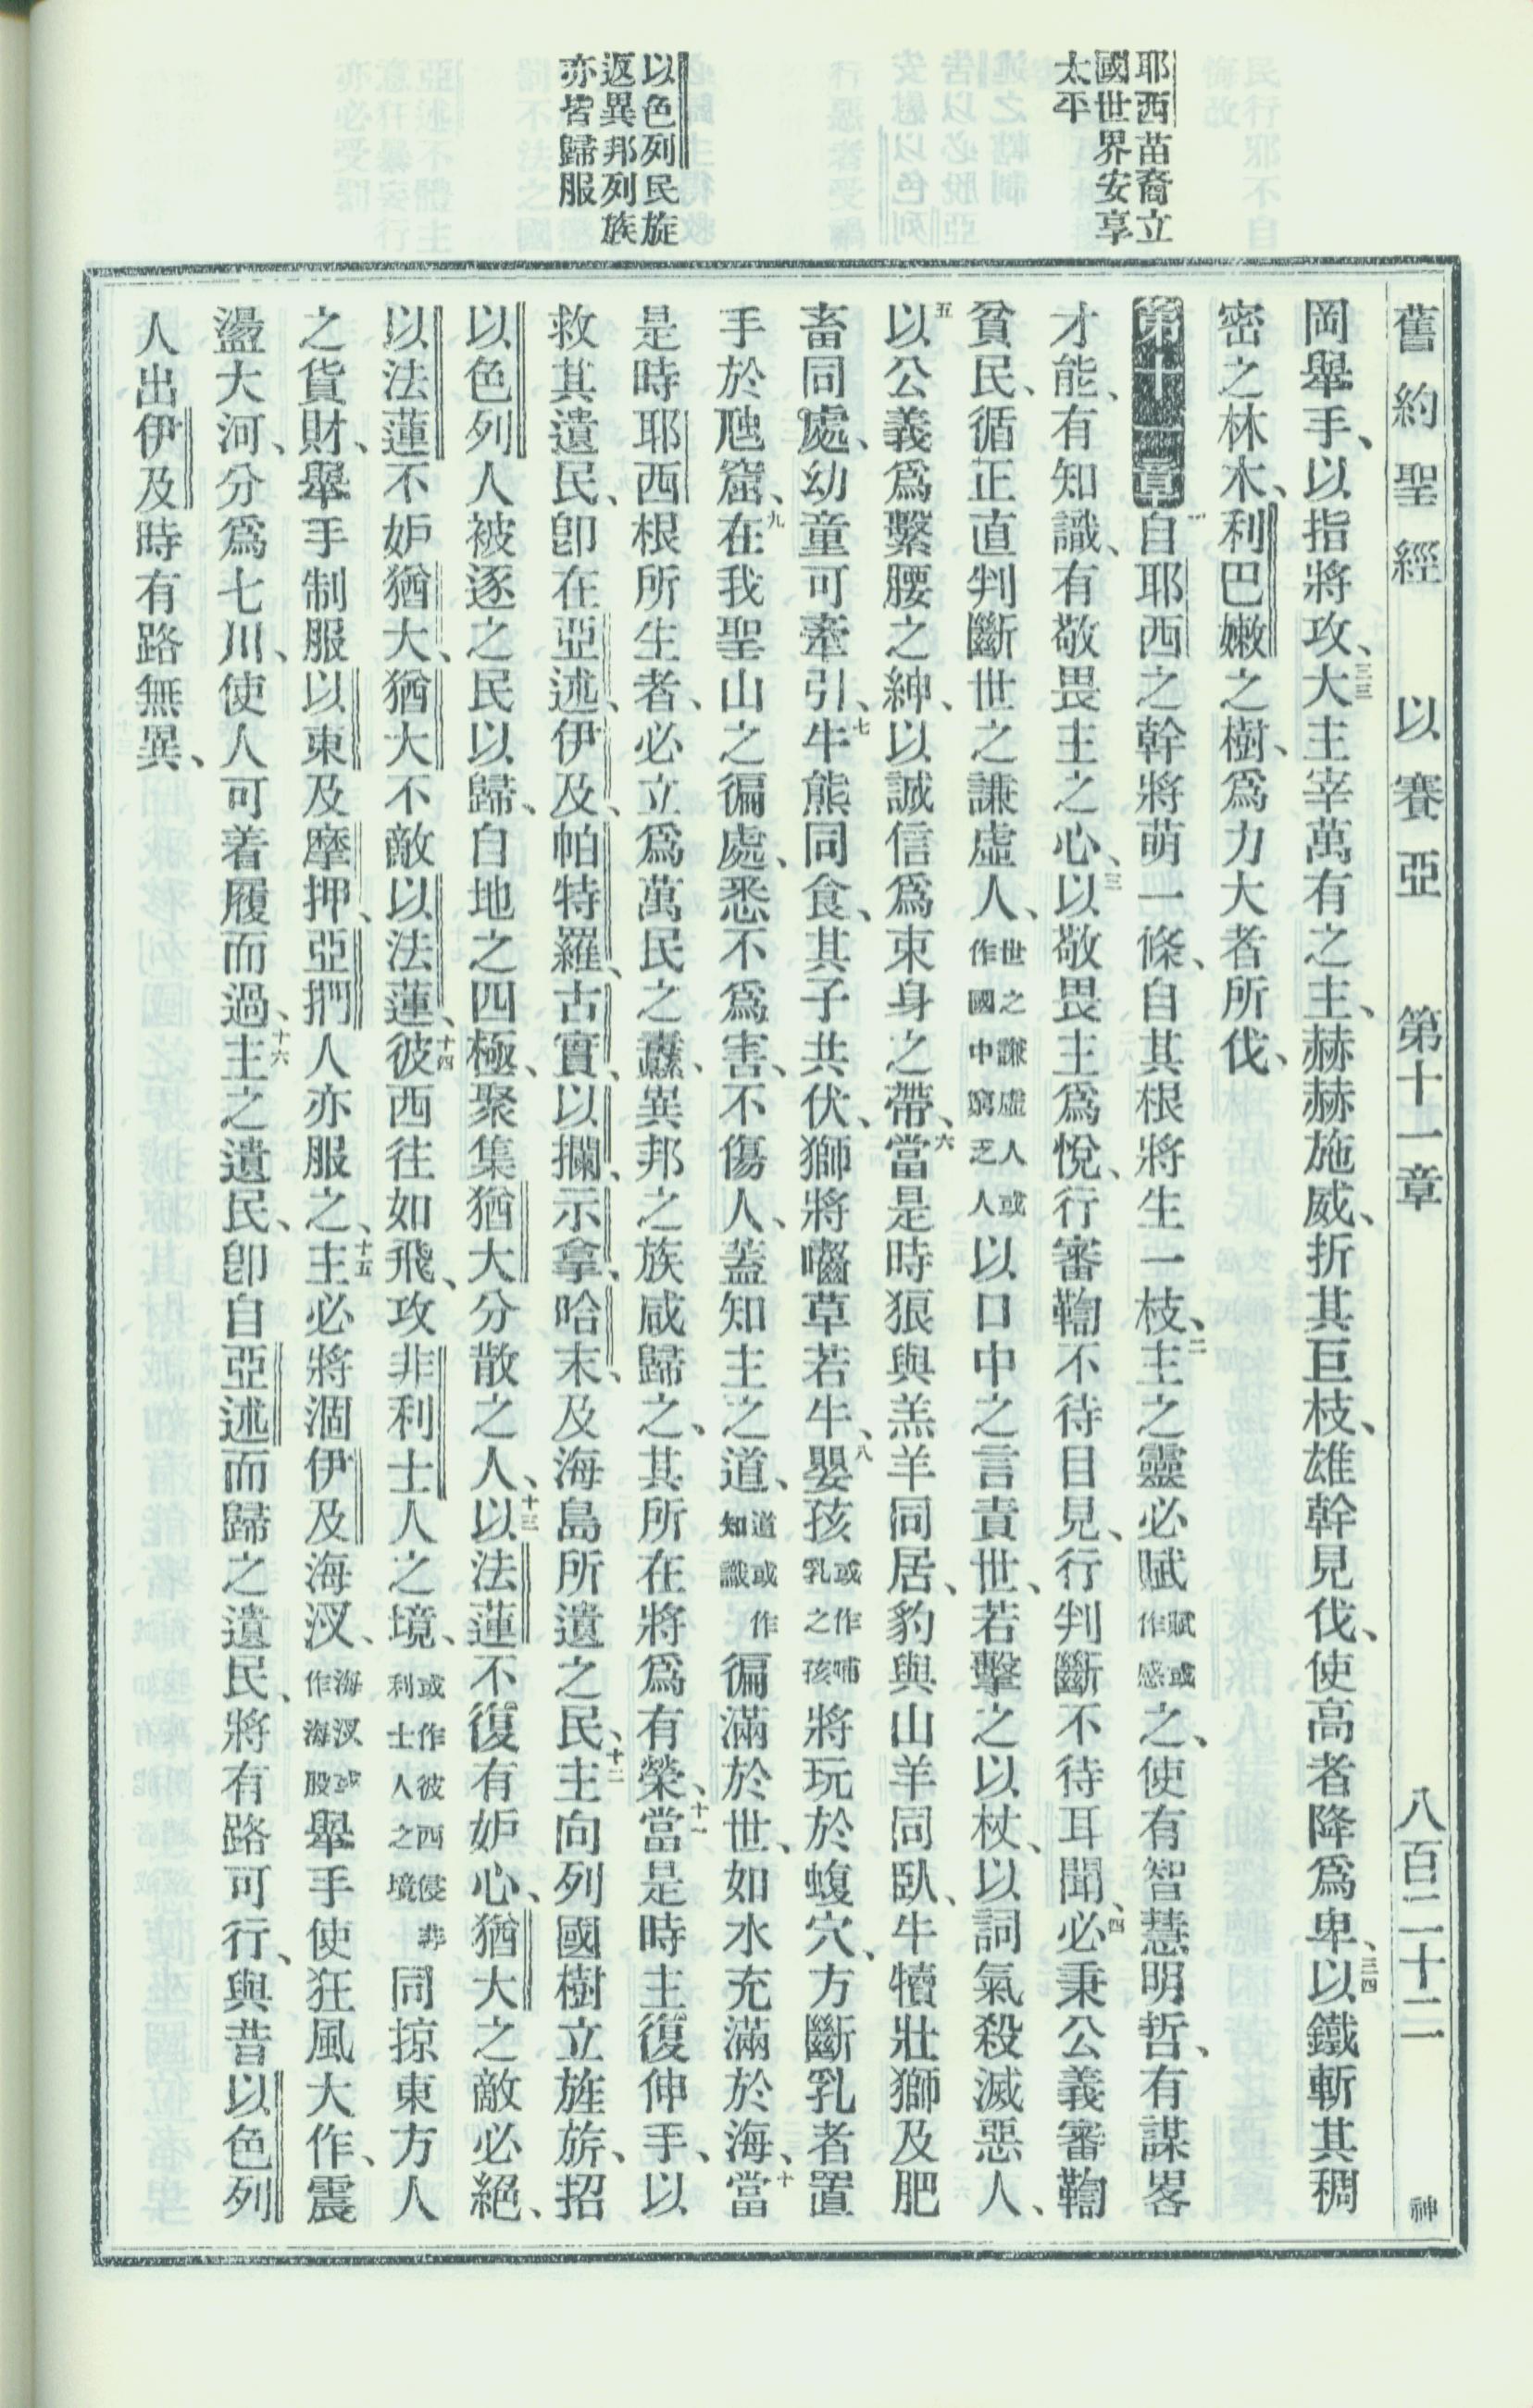 舊約聖經 以賽亞 第十一章 八百二十二 神
耶西苗裔立
國世界安享
太平
以色列民旋
返異邦列族
亦皆歸服
岡舉手、以指將攻、三三大主宰萬有之主、赫赫施威、折其巨枝、雄幹見伐、使高者降爲卑、三四以鐵斬其稠
密之林木、利巴嫩之樹、爲力大者所伐、
第十一章一自耶西之幹將萌一條、自其根將生一枝、二主之靈必賦賦或作感之、使有智慧明哲、有謀畧
才能、有知識、有敬畏主之心、三以敬畏主爲悅、行審鞫不待目見、行判斷不待耳聞、四必秉公義審鞫
貧民、循正直判斷世之謙虛人、世之謙虛人或作國中窮乏人以口中之言責世、若擊之以杖、以詞氣殺滅惡人、
五以公義爲繫腰之紳、以誠信爲束身之帶、六當是時狼與羔羊同居、豹與山羊同臥、牛犢壯獅及肥
畜同處、幼童可牽引、七牛熊同食、其子共伏、獅將嚙草若牛、八嬰孩或作哺乳之孩將玩於蝮穴、方斷乳者置
手於虺窟、九在我聖山之徧處、悉不爲害、不傷人、蓋知主之道、道或作知識徧滿於世、如水充滿於海、十當
是時耶西根所生者、必立爲萬民之纛、異邦之族咸歸之、其所在將爲有榮、十一當是時主復伸手、以
救其遺民、卽在亞述、伊及、帕特羅、古實、以攔、示拿、哈末、及海島所遺之民、十二主向列國樹立旌旂、招
以色列人被逐之民以歸、自地之四極、聚集猶大分散之人、十三以法蓮不復有妒心、猶大之敵必絕、
以法蓮不妒猶大、猶大不敵以法蓮、十四彼西往如飛、攻非利士人之境、或作彼西侵非利士人之境同掠東方人
之貨財、舉手制服以東及摩押、亞捫人亦服之、十五主必將涸伊及海汊、海汊或作海股舉手使狂風大作、震
盪大河、分爲七川、使人可着履而過、十六主之遺民、卽自亞述而歸之遺民、將有路可行、與昔以色列
人出伊及時有路無異、